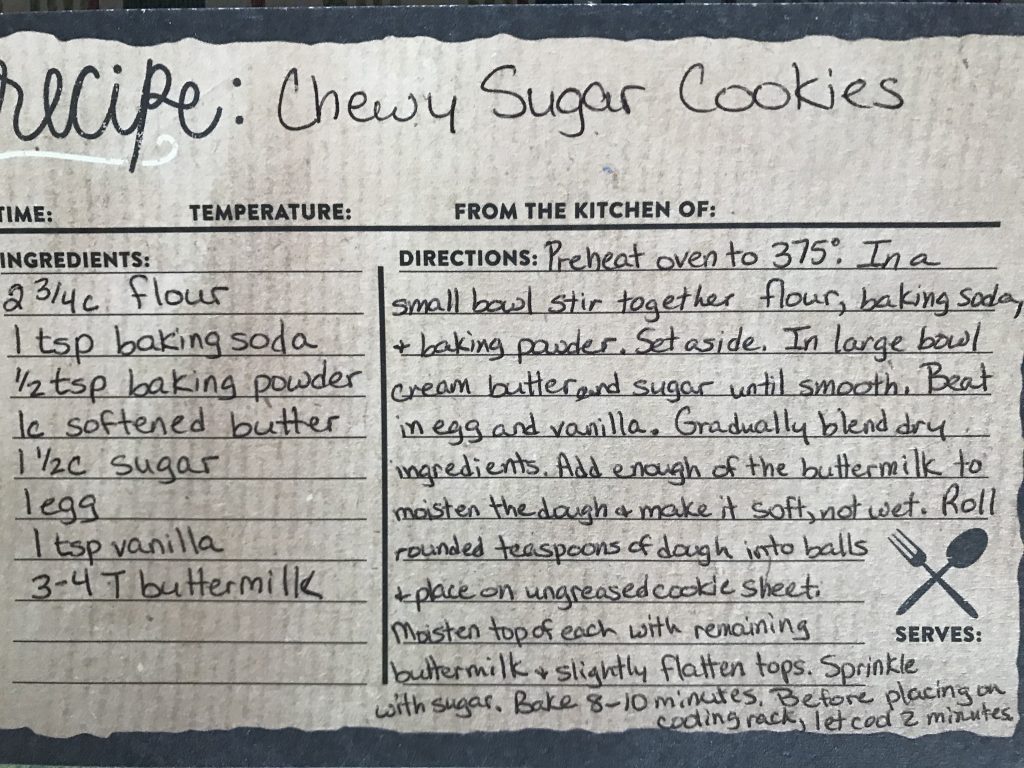 recipe: Chewy Sugar Cookies
TIME: TEMPERATURE: FROM THE KITCHEN OF:
INGREDIENTS:
2 3/4 c. flour
1 tsp baking soda
1/2 tsp baking powder
1c softened butter
1 1/2c sugar
1 egg
1 tsp vanilla
3-4 T buttermilk
DIRECTIONS: Preheat oven to 375°. In a
small bowl stir together flour, baking soda,
+ baking powder. Set aside. In large bowl
cream butter and sugar until smooth. Beat
in egg and vanilla. Gradually blend dry
ingredients. Add enough of the buttermilk to
moisten the dough + make it soft, not wet. Roll
rounded teaspoons of dough into balls
+ place on ungreased cookie sheet.
Moisten top of each with remaining
buttermilk + slightly flatten tops. Sprinkle
with sugar. Bake 8-10 minutes. Before placing on
cooling rack, let cool 2 minutes.
SERVES: